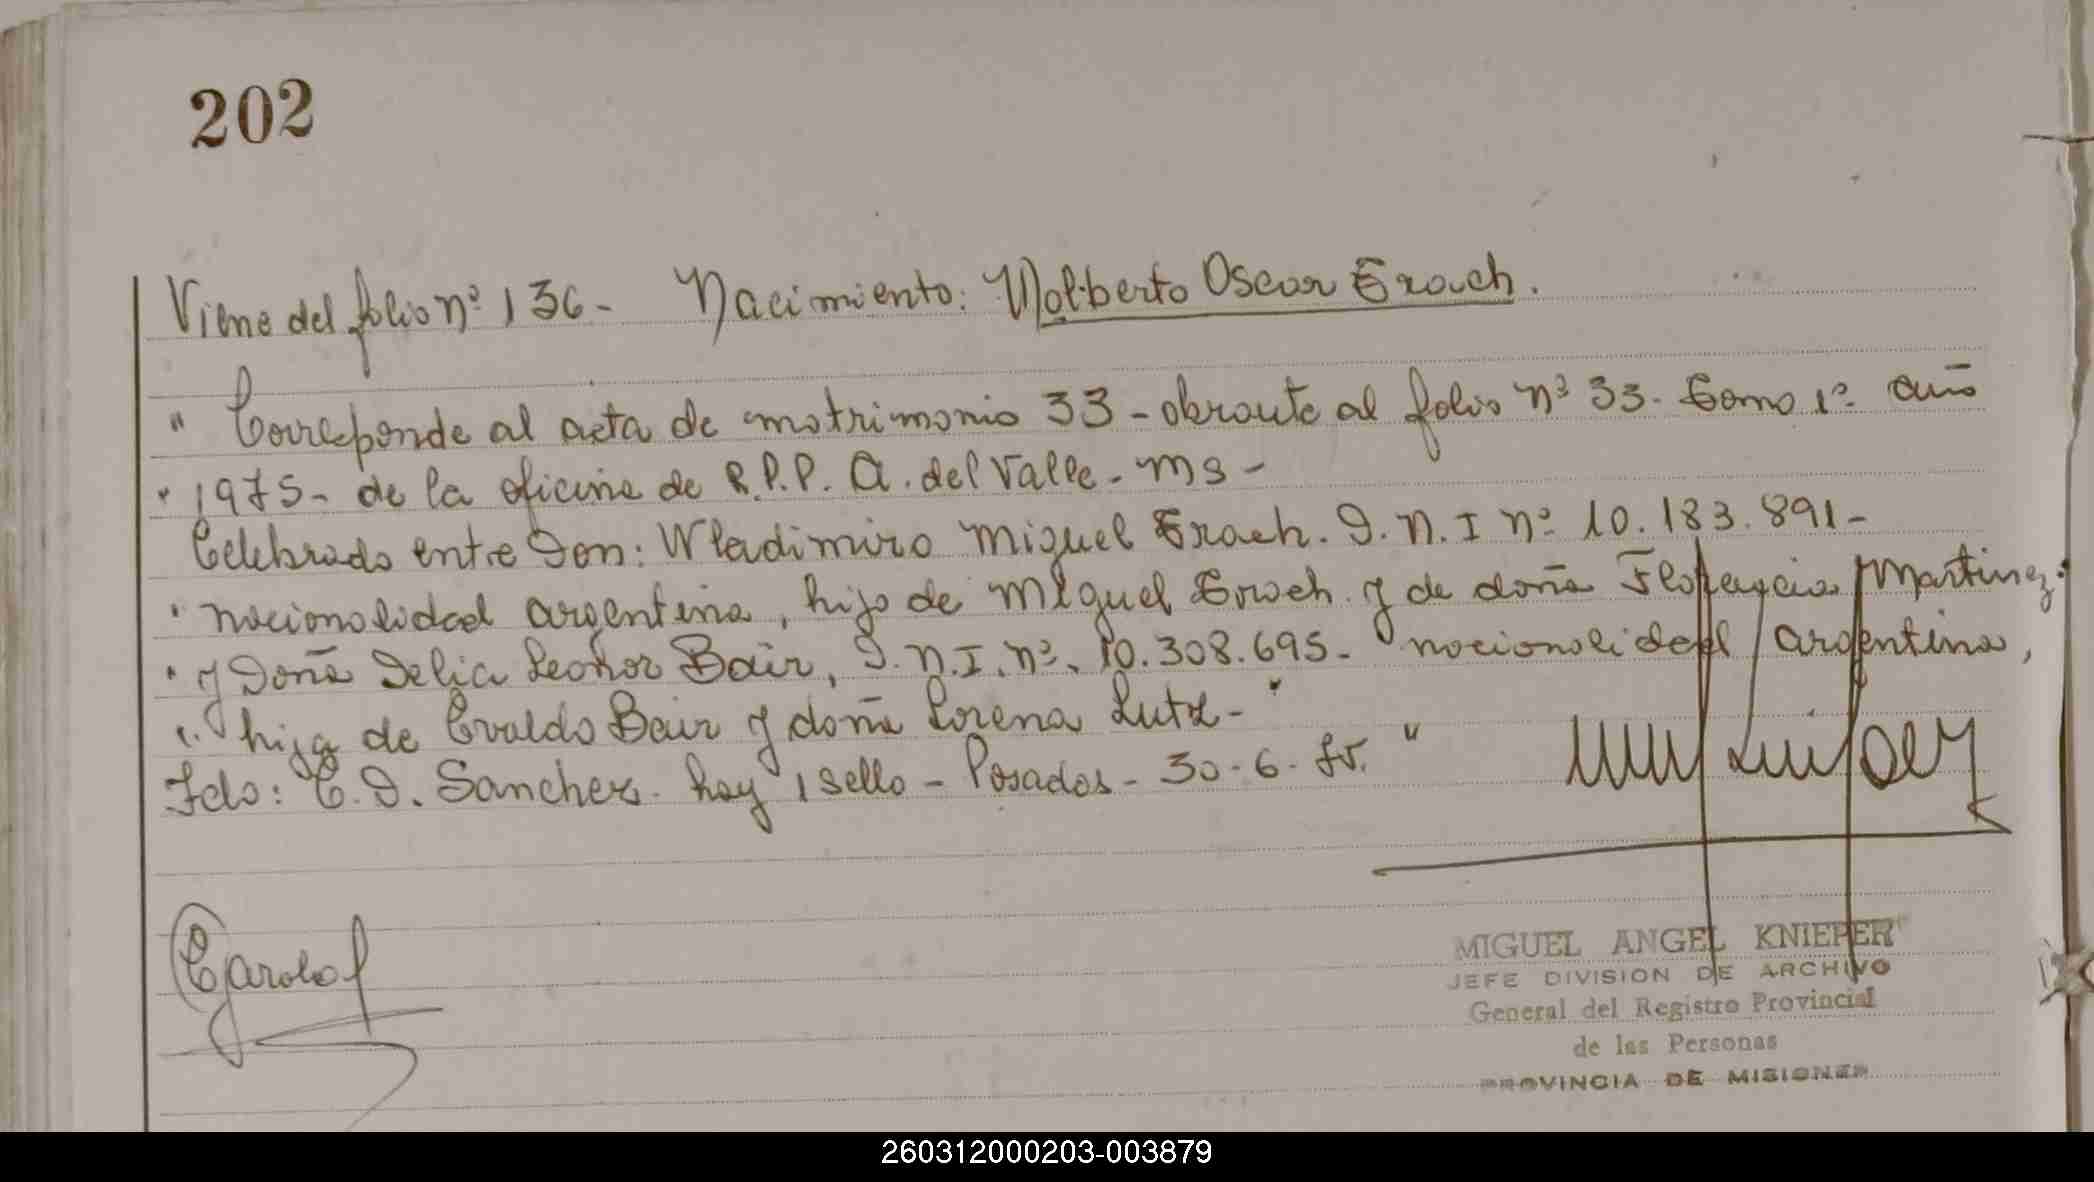 202
Viene del folio nº 136 - Nacimiento: Nolberto Oscar Eroch.
" Corresponde al acta de matrimonio 33 - obrante al folio nº 33. Tomo 1º año
" 1975 - de la oficina de R.P.P. A. del Valle - Ms -
Celebrado entre Don: Wladimiro Miguel Eroch. D.N.I nº 10.183.891 -
" nacionalidad argentina, hijo de Miguel Eroch y de doña Florencia Martinez.
" y Doña Delia Leonor Bair, D.N.I. nº. 10.308.695 - nacionalidad argentina,
" hija de Evaldo Bair y doña Lorena Lutz - "
Fdo: C. D. Sanchez. hay 1 sello - Posadas - 30 - 6 - "
MIGUEL ANGEL KNIEPER
JEFE DIVISION DE ARCHIVO
General del Registro Provincial
de las Personas
PROVINCIA DE MISIONES
260312000203-003879